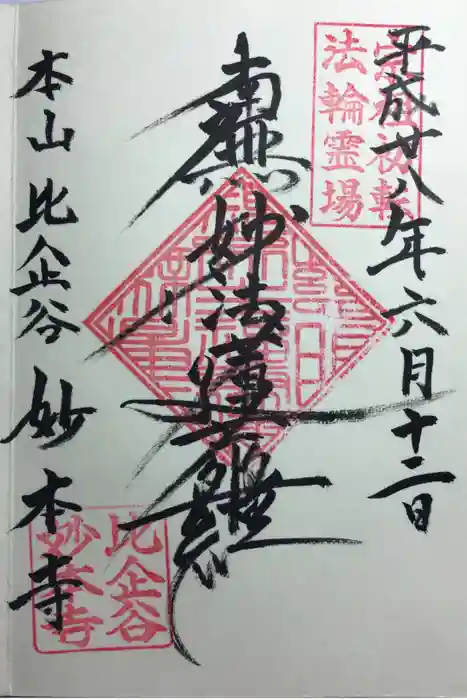 平成廿八年六月十二日
宗祖初転
法輪霊場
南無妙法蓮華経
本山比企谷妙本寺
比企谷
妙本寺